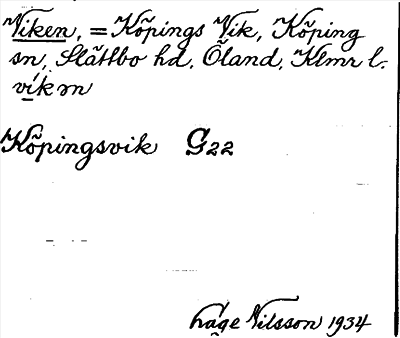 Viken, = Köpings Vik, Köping
sn, Slättbo hd, Öland, Klmr l.
víkən
Köpingsvik G22
Åke Nilsson 1934